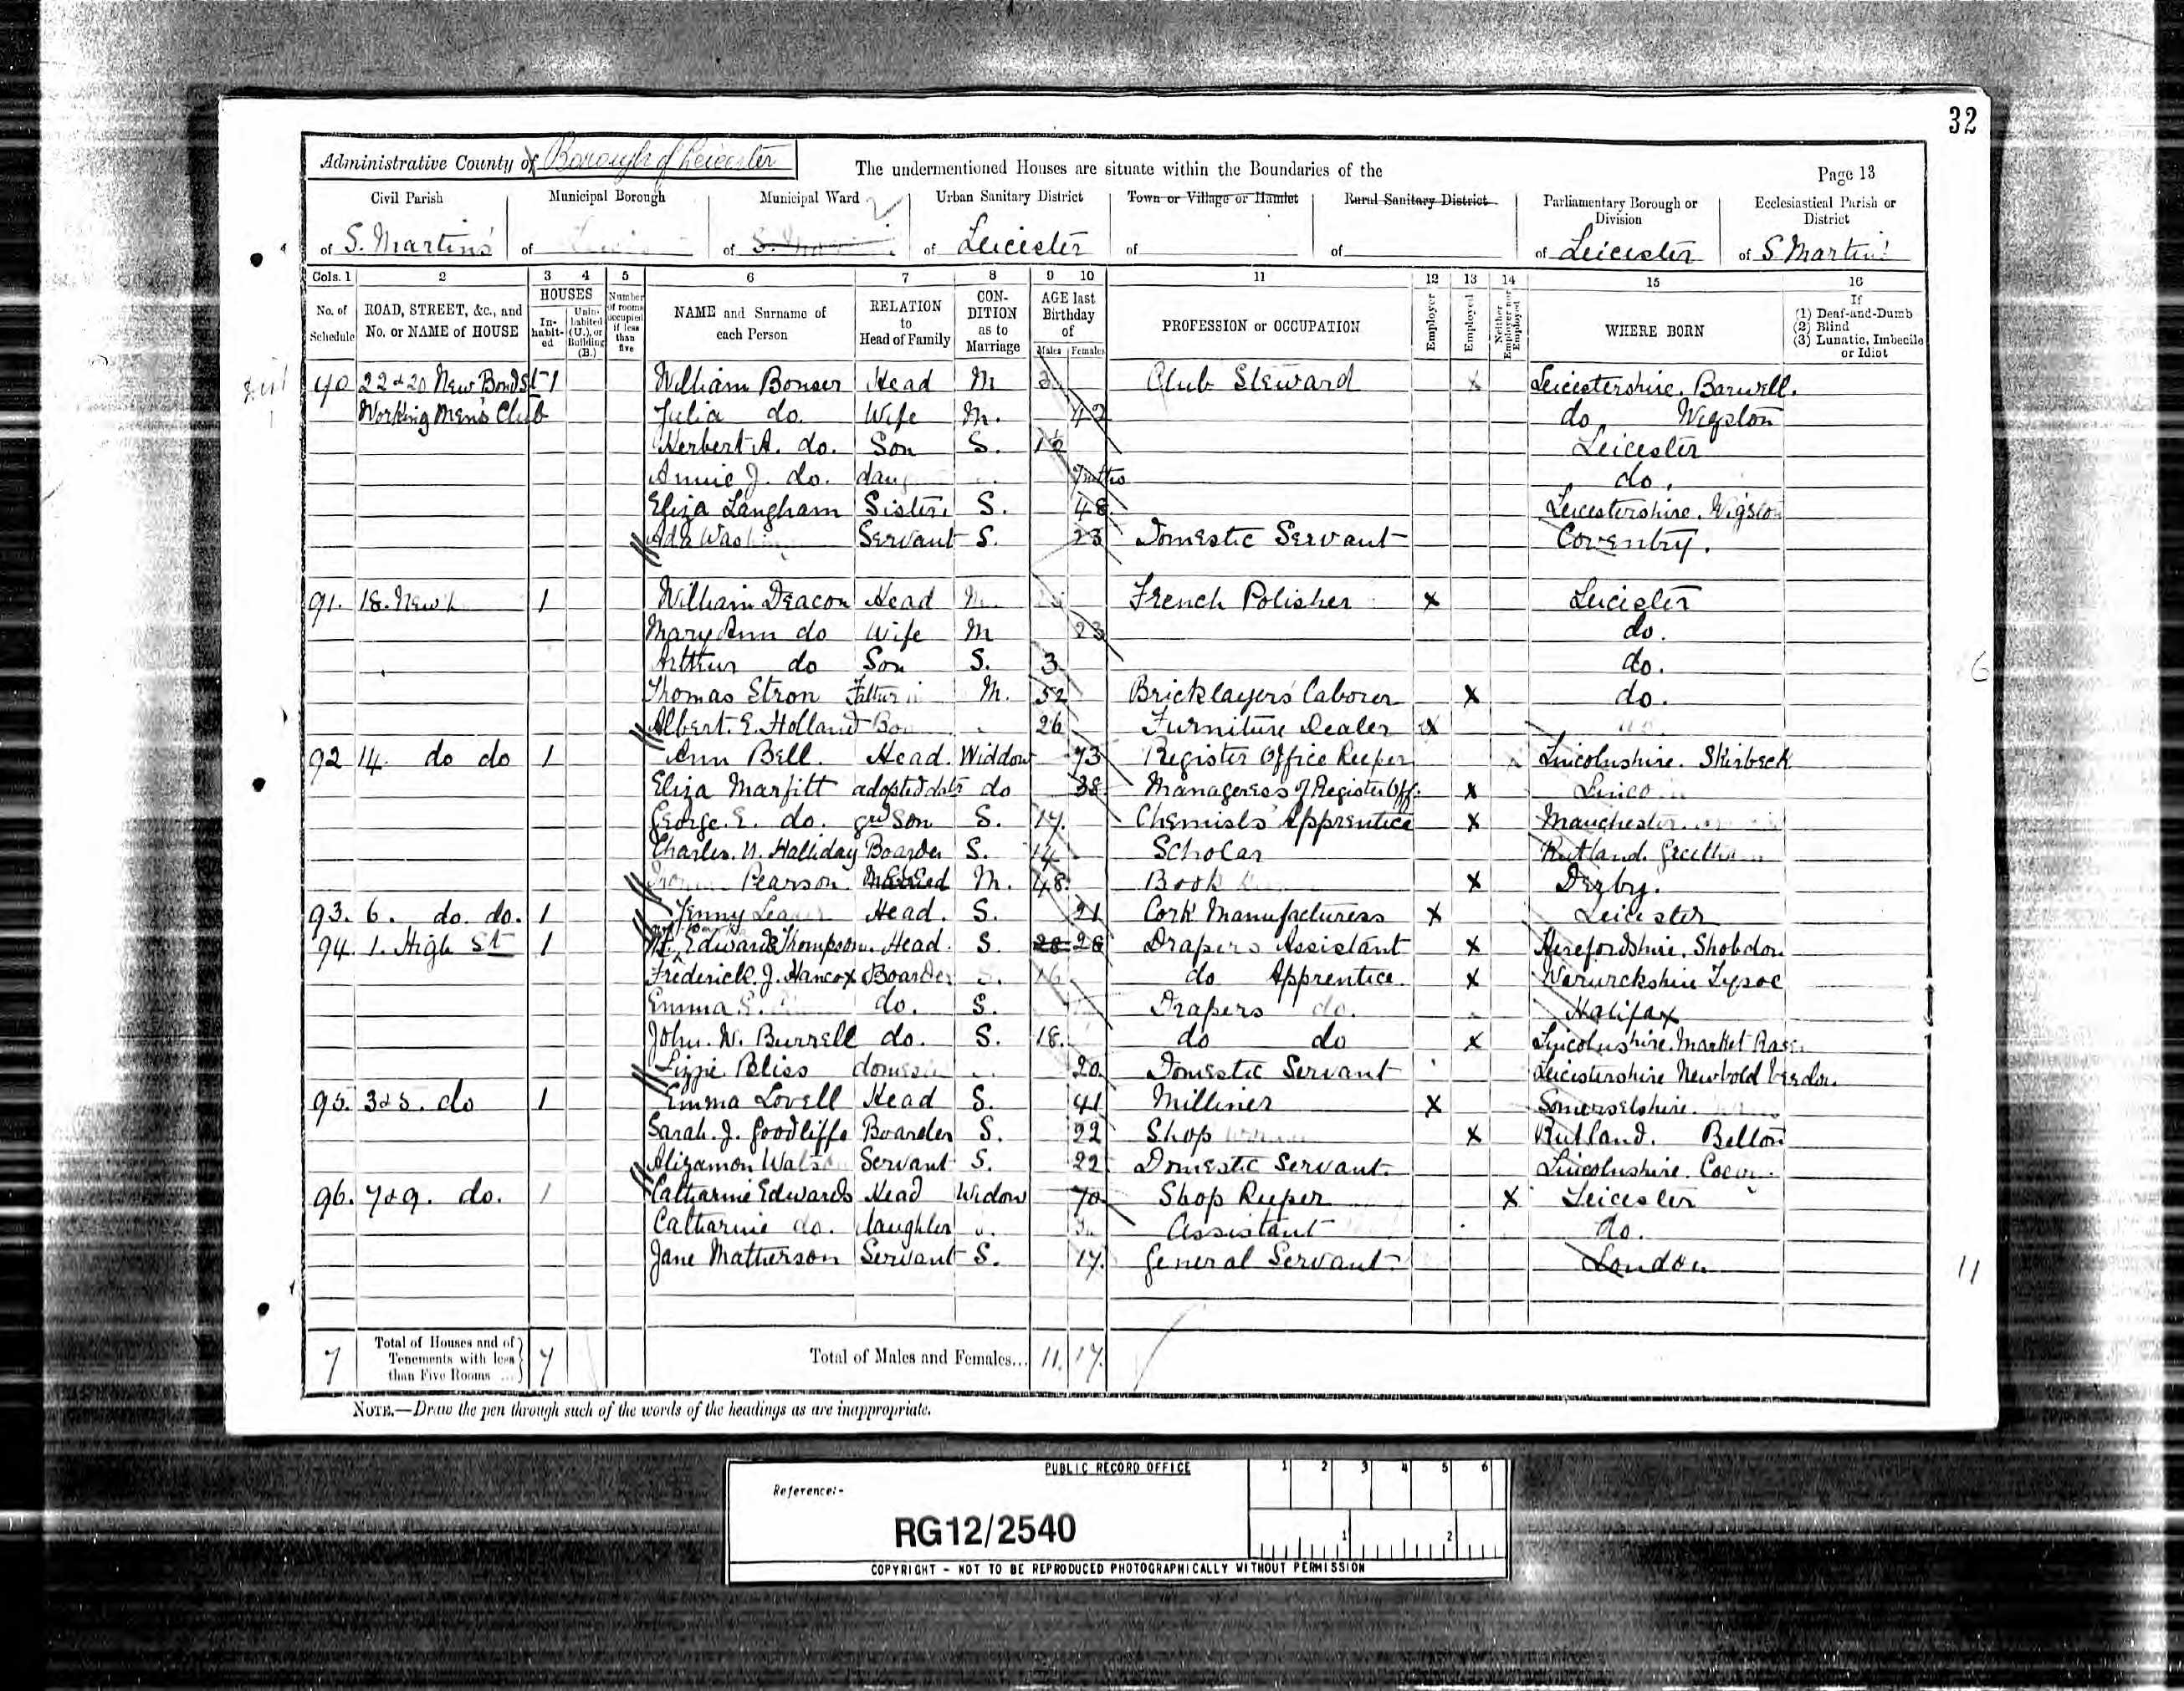 32
Administrative County of Borough of Leicester
The undermentioned Houses are situate within the Boundaries of the
Page 13
Civil Parish Municipal Borough Municipal Ward Urban Sanitary District Town or Village or Hamlet Rural Sanitary District Parliamentary Borough or Division Ecclesiastical Parish or District
of S. Martin's of of of Leicester of of of Leicester of S. Martin
Cols. 1 2 3 4 5 6 7 8 9 10 11 12 13 14 15 16
No. of Schedule ROAD, STREET, &c., and No. or NAME of HOUSE HOUSES Inhabited Uninhabited (U.), or Building (B.) Number of rooms occupied if less than five NAME and Surname of each Person RELATION to Head of Family CONDITION as to Marriage AGE last Birthday of Males Females PROFESSION or OCCUPATION Employer Employed Neither Employer nor Employed WHERE BORN If (1) Deaf-and-Dumb (2) Blind (3) Lunatic, Imbecile or Idiot
90 22 & 20 New Bond St 1 William Bonser Head M Club Steward X Leicestershire. Barwell.
Working Men's Club Julia do. Wife M. 42 do Wigston
Herbert A. do. Son S. Leicester
Annie J. do. do.
Eliza Langham Sister S. 48 Leicestershire. Wigston
Ada Servant S. 23 Domestic Servant Coventry.
91. 18. New 1 William Deacon Head M. French Polisher X Leicester
Mary Ann do Wife M 23 do.
Arthur do Son S. 3 do.
Thomas Etron Father M. 52 Bricklayers Laborer X do.
Albert. E. Holland 26 Furniture Dealer X
92 14. do do 1 Ann Bell. Head. Widdow 73 Register Office Keeper Lincolnshire. Skirbeck
Eliza Marfitt adopted datr do 38 Manageress of Register Off. X
George. E. do. gd Son S. 17. Chemists Apprentice X Manchester.
Charles. Halliday Boarder S. 14 Scholar Rutland.
Pearson. M. 48. Book X Derby.
93. 6. do. do. 1 Jenny Head. S. 21 Cork Manufacturess X Leicester
94. 1. High St 1 Edwards Thompson. Head. S. 28 28 Drapers Assistant X Herefordshire. Shobdon
Frederick. J. Hancox Boarder S. 16 do Apprentice. X Warwickshire Tysoe
Emma E. do. S. Drapers do. Halifax
John. W. Burrell do. S. 18. do do X Lincolnshire. Market Rasen
Lizzie Bliss 20 Domestic Servant Leicestershire Newbold Verdon.
95. 3 & 5. do 1 Emma Lovell Head S. 41 Milliner X Somersetshire.
Sarah. J. Goodliffe Boarder S. 22 Shop X Rutland. Belton
Servant S. 22 Domestic Servant. Lincolnshire.
96. 7 & 9. do. 1 Catharine Edwards Head Widow 70 Shop Keeper X Leicester
Catharine do. daughter Assistant do.
Jane Matherson Servant S. 17. General Servant London
7 Total of Houses and of Tenements with less than Five Rooms 7 Total of Males and Females... 11. 17.
NOTE.—Draw the pen through such of the words of the headings as are inappropriate.
6
11
PUBLIC RECORD OFFICE
1 2 3 4 5 6
Reference:-
RG12/2540
1 2
COPYRIGHT - NOT TO BE REPRODUCED PHOTOGRAPHICALLY WITHOUT PERMISSION